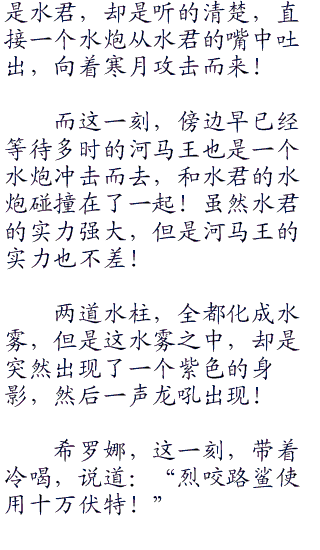 是水君，却是听的清楚，直
接一个水炮从水君的嘴中吐
出，向着寒月攻击而来！
而这一刻，傍边早已经
等待多时的河马王也是一个
水炮冲击而去，和水君的水
炮碰撞在了一起！虽然水君
的实力强大，但是河马王的
实力也不差！
两道水柱，全都化成水
雾，但是这水雾之中，却是
突然出现了一个紫色的身
影，然后一声龙吼出现！
希罗娜，这一刻，带着
冷喝，说道：“烈咬路鲨使
用十万伏特！”